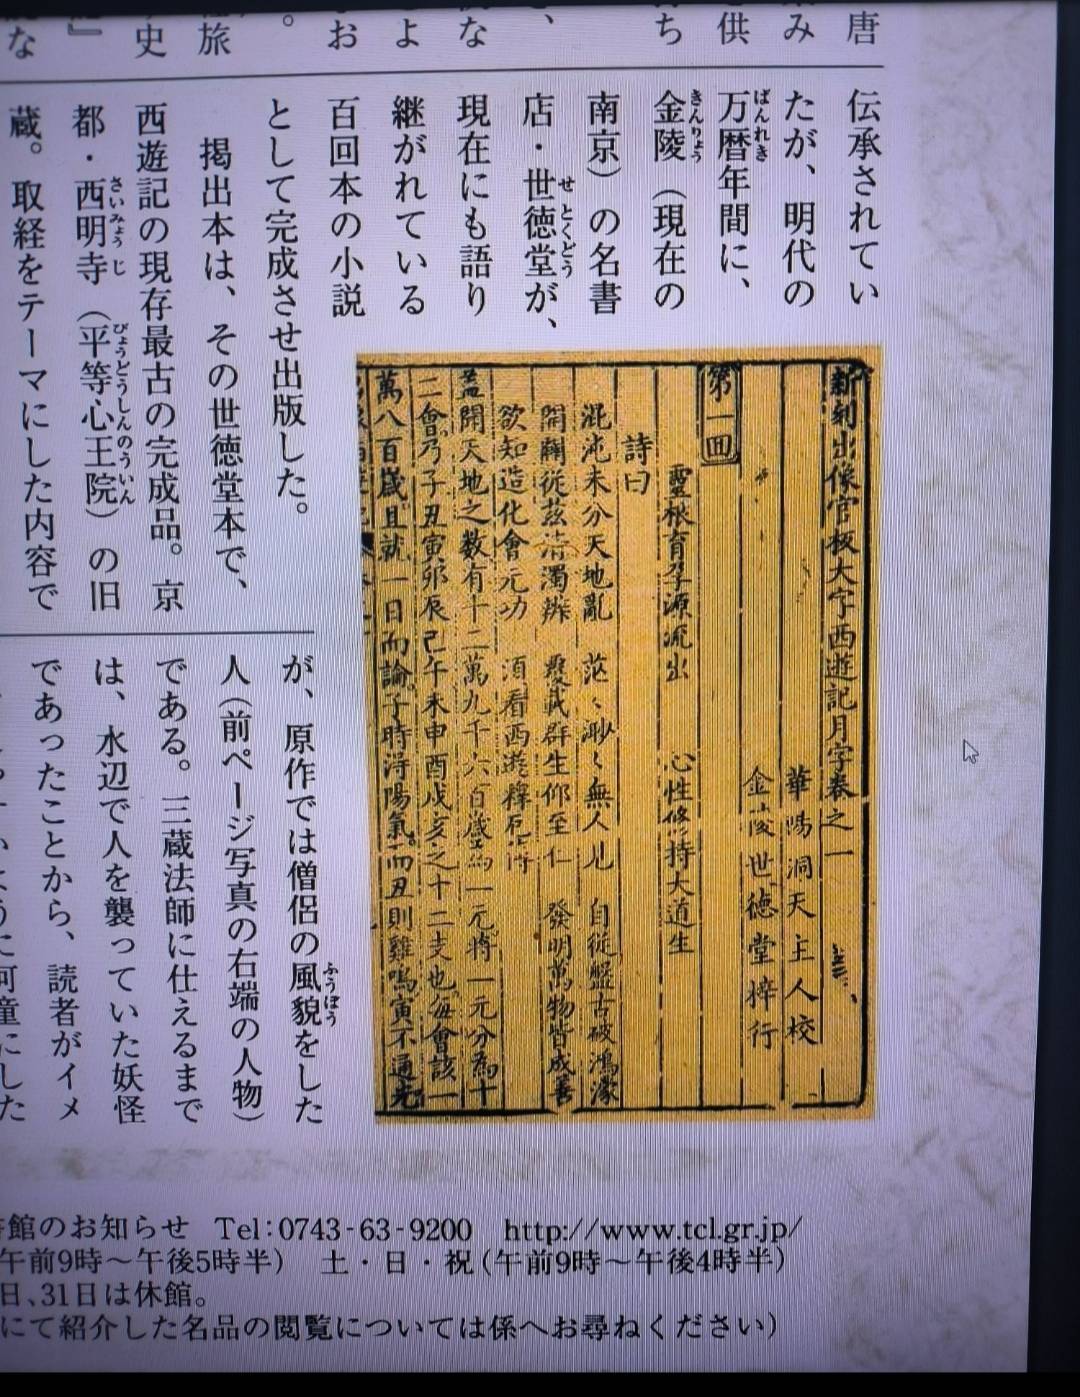 唐
み
供
ち
な
よ
お
。
旅
史
』
な
伝承されてい
たが、明代の
万暦年間に、
ばんれき
金陵（現在の
きんりょう
南京）の名書
店・世徳堂が、
せとくどう
現在にも語り
継がれている
百回本の小説
として完成させ出版した。
掲出本は、その世徳堂本で、
西遊記の現存最古の完成品。京
都・西明寺（平等心王院）の旧
さいみょうじ
びょうどうしんのういん
蔵。取経をテーマにした内容で
新刻出像官板大字西遊記月字卷之一
華陽洞天主人校
金陵世德堂梓行
第一回
靈根育孕源流出　心性修持大道生
詩曰
混沌未分天地亂　茫〻渺〻無人見　自從盤古破鴻濛
開闢從茲清濁辨　覆載群生仰至仁　發明萬物皆成善
欲知造化會元功　須看西遊釋厄傳
蓋聞天地之數有十二萬九千六百歲爲一元將一元分為十
二會乃子丑寅卯辰巳午未申酉戌亥之十二支也每會該一
萬八百歲且就一日而論子時得陽氣而丑則雞鳴寅不通光
が、原作では僧侶の風貌をした
ふうぼう
人（前ページ写真の右端の人物）
である。三蔵法師に仕えるまで
は、水辺で人を襲っていた妖怪
であったことから、読者がイメ
館のお知らせ　Tel:0743-63-9200　http://www.tcl.gr.jp/
午前9時～午後5時半）　土・日・祝（午前9時～午後4時半）
日、31日は休館。
にて紹介した名品の閲覧については係へお尋ねください）